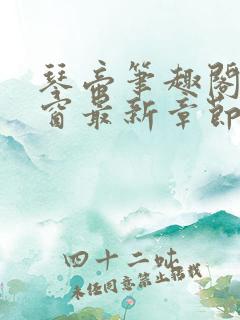 琴帝笔趣阁
窗最新章节
四十二吋
未经同意禁止搭栈